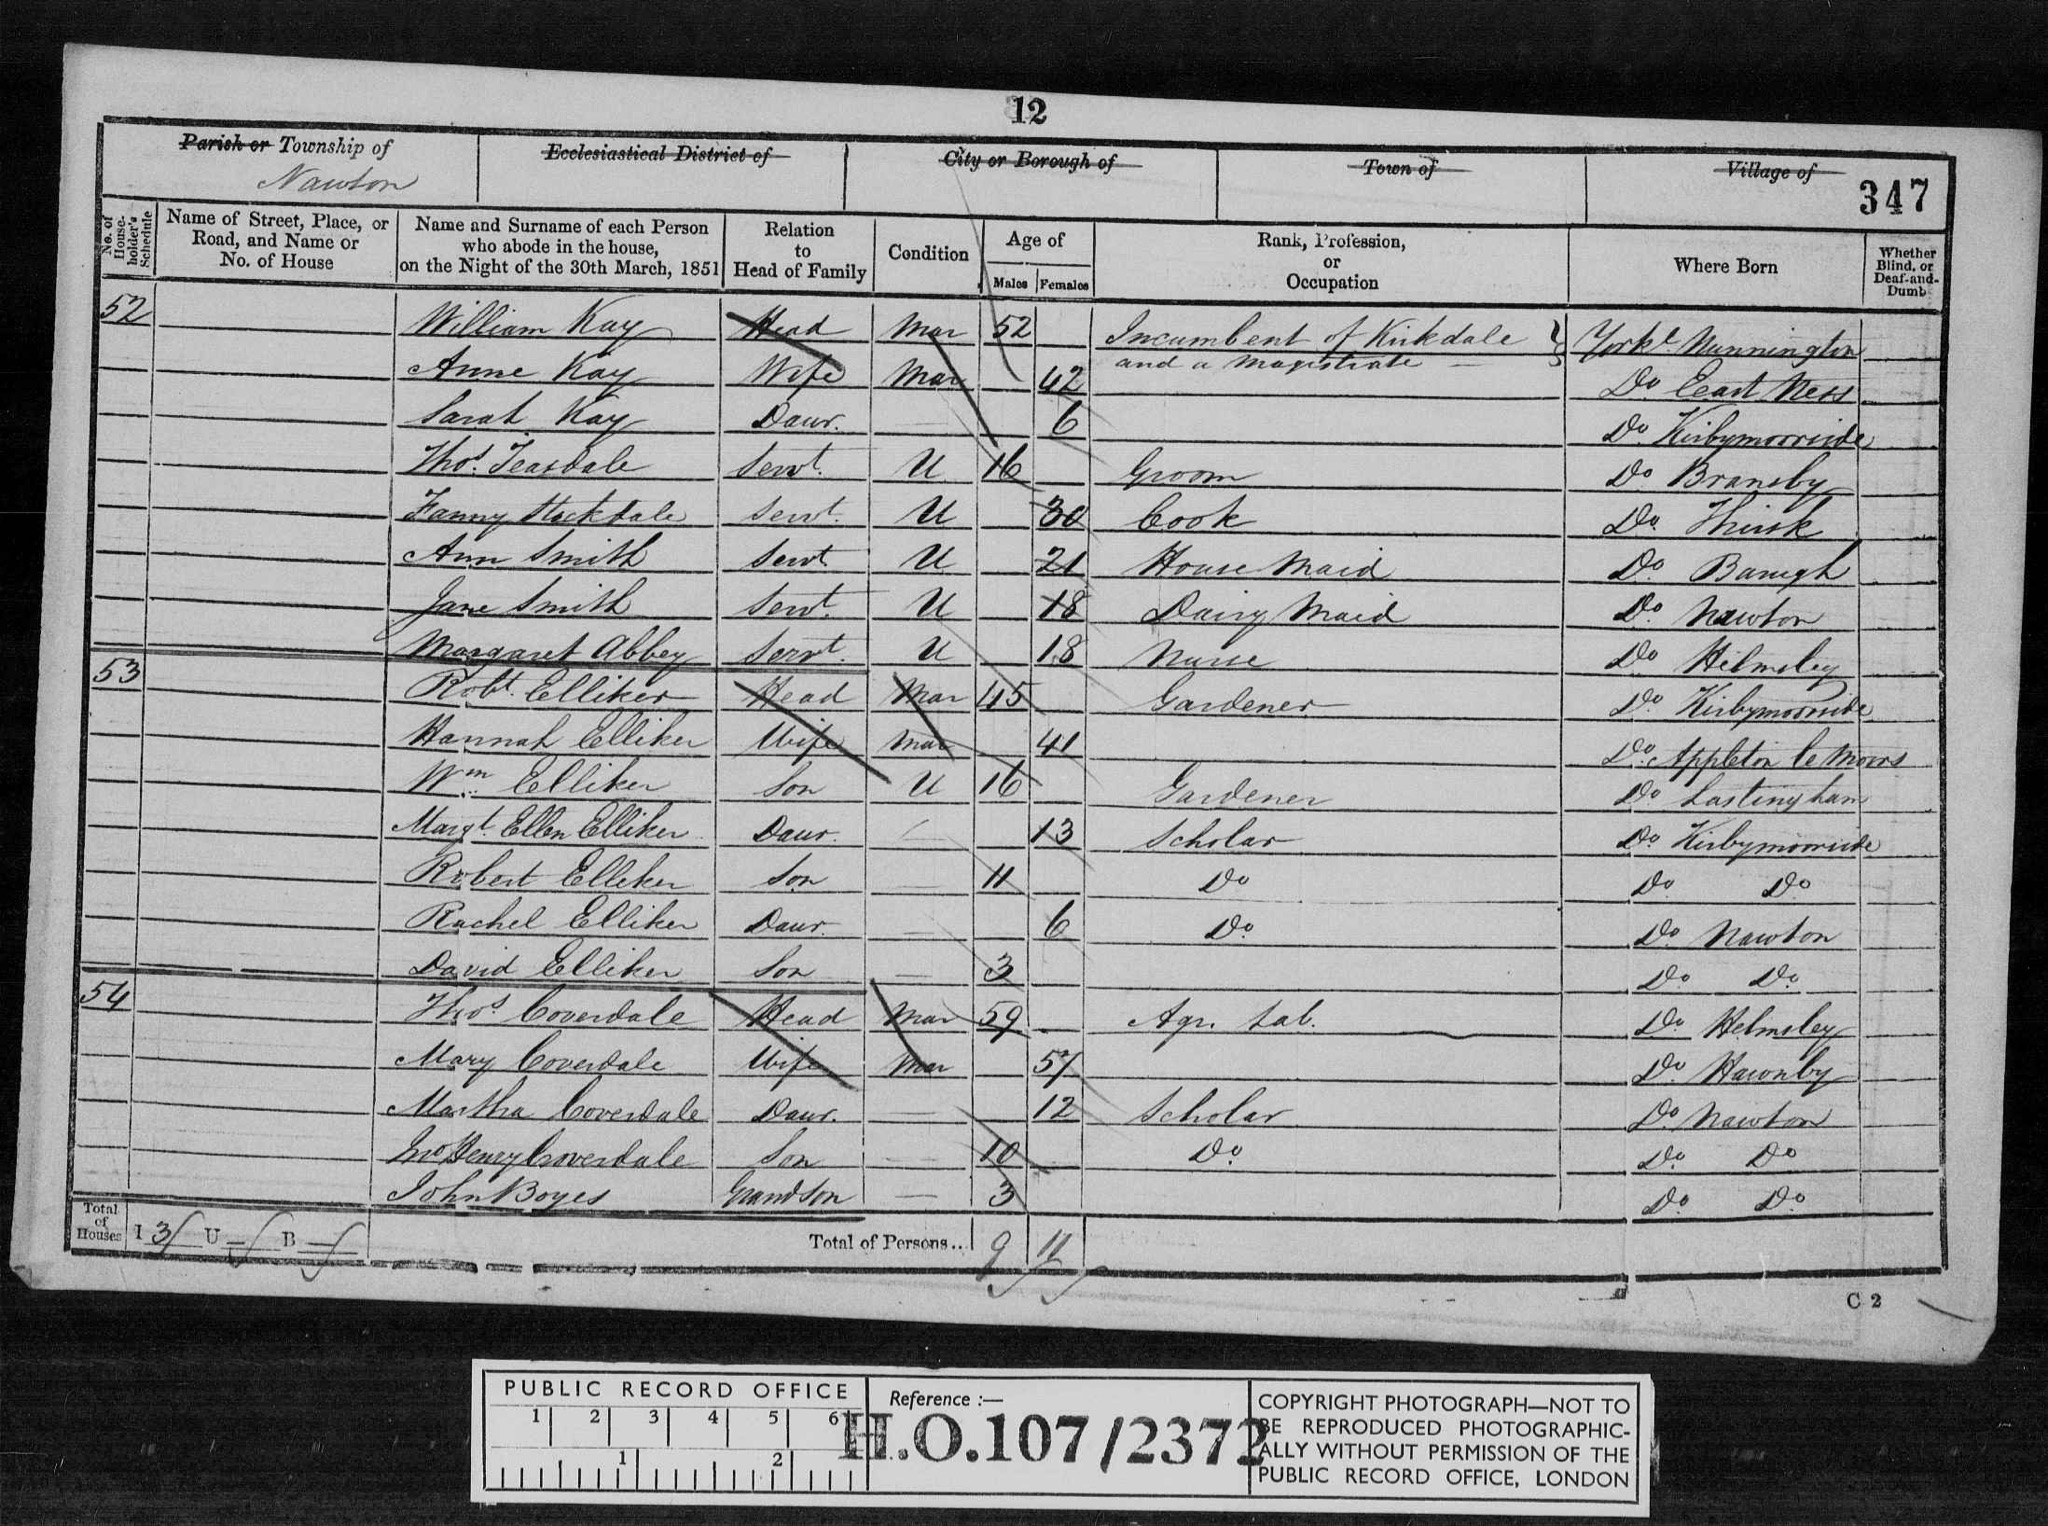 12
Parish or Township of
Nawton
Ecclesiastical District of
City or Borough of
Town of
Village of
347
No. of House-holder's Schedule
Name of Street, Place, or Road, and Name or No. of House
Name and Surname of each Person who abode in the house, on the Night of the 30th March, 1851
Relation to Head of Family
Condition
Age of
Males
Females
Rank, Profession, or Occupation
Where Born
Whether Blind, or Deaf-and-Dumb
52 William Kay Head Mar 52 Incumbent of Kirkdale Yorks. Nunnington
and a Magistrate
Anne Kay Wife Mar 42 Do East Ness
Sarah Kay Daur. 6 Do Kirbymoorside
Thos. Teasdale Servt. U 16 Groom Do Bransby
Fanny Stockdale Servt. U 30 Cook Do Thirsk
Ann Smith Servt U 21 House Maid Do Baugh
Jane Smith Servt. U 18 Dairy Maid Do Nawton
Margaret Abbey Servt. U 18 Nurse Do Helmsley
53 Robt. Elliker Head Mar 45 Gardener Do Kirbymoorside
Hannah Elliker Wife Mar 41 Do Appleton le Moors
Wm Elliker Son U 16 Gardener Do Lastingham
Margt. Ellen Elliker Daur. 13 Scholar Do Kirbymoorside
Robert Elliker Son 11 Do Do Do
Rachel Elliker Daur. 6 Do Do Nawton
David Elliker Son 3 Do Do
54 Thos Coverdale Head Mar 59 Agr. Lab. Do Helmsley
Mary Coverdale Wife Mar 57 Do Hawnby
Martha Coverdale Daur. 12 Scholar Do Nawton
Jno Henry Coverdale Son 10 Do Do Do
John Boyes Grandson 3 Do Do
Total of Houses I 3 U B Total of Persons.. 9 11
C 2
PUBLIC RECORD OFFICE
1 2 3 4 5 6
1 2
Reference :—
H.O.107/2372
COPYRIGHT PHOTOGRAPH—NOT TO
BE REPRODUCED PHOTOGRAPHIC-
ALLY WITHOUT PERMISSION OF THE
PUBLIC RECORD OFFICE, LONDON